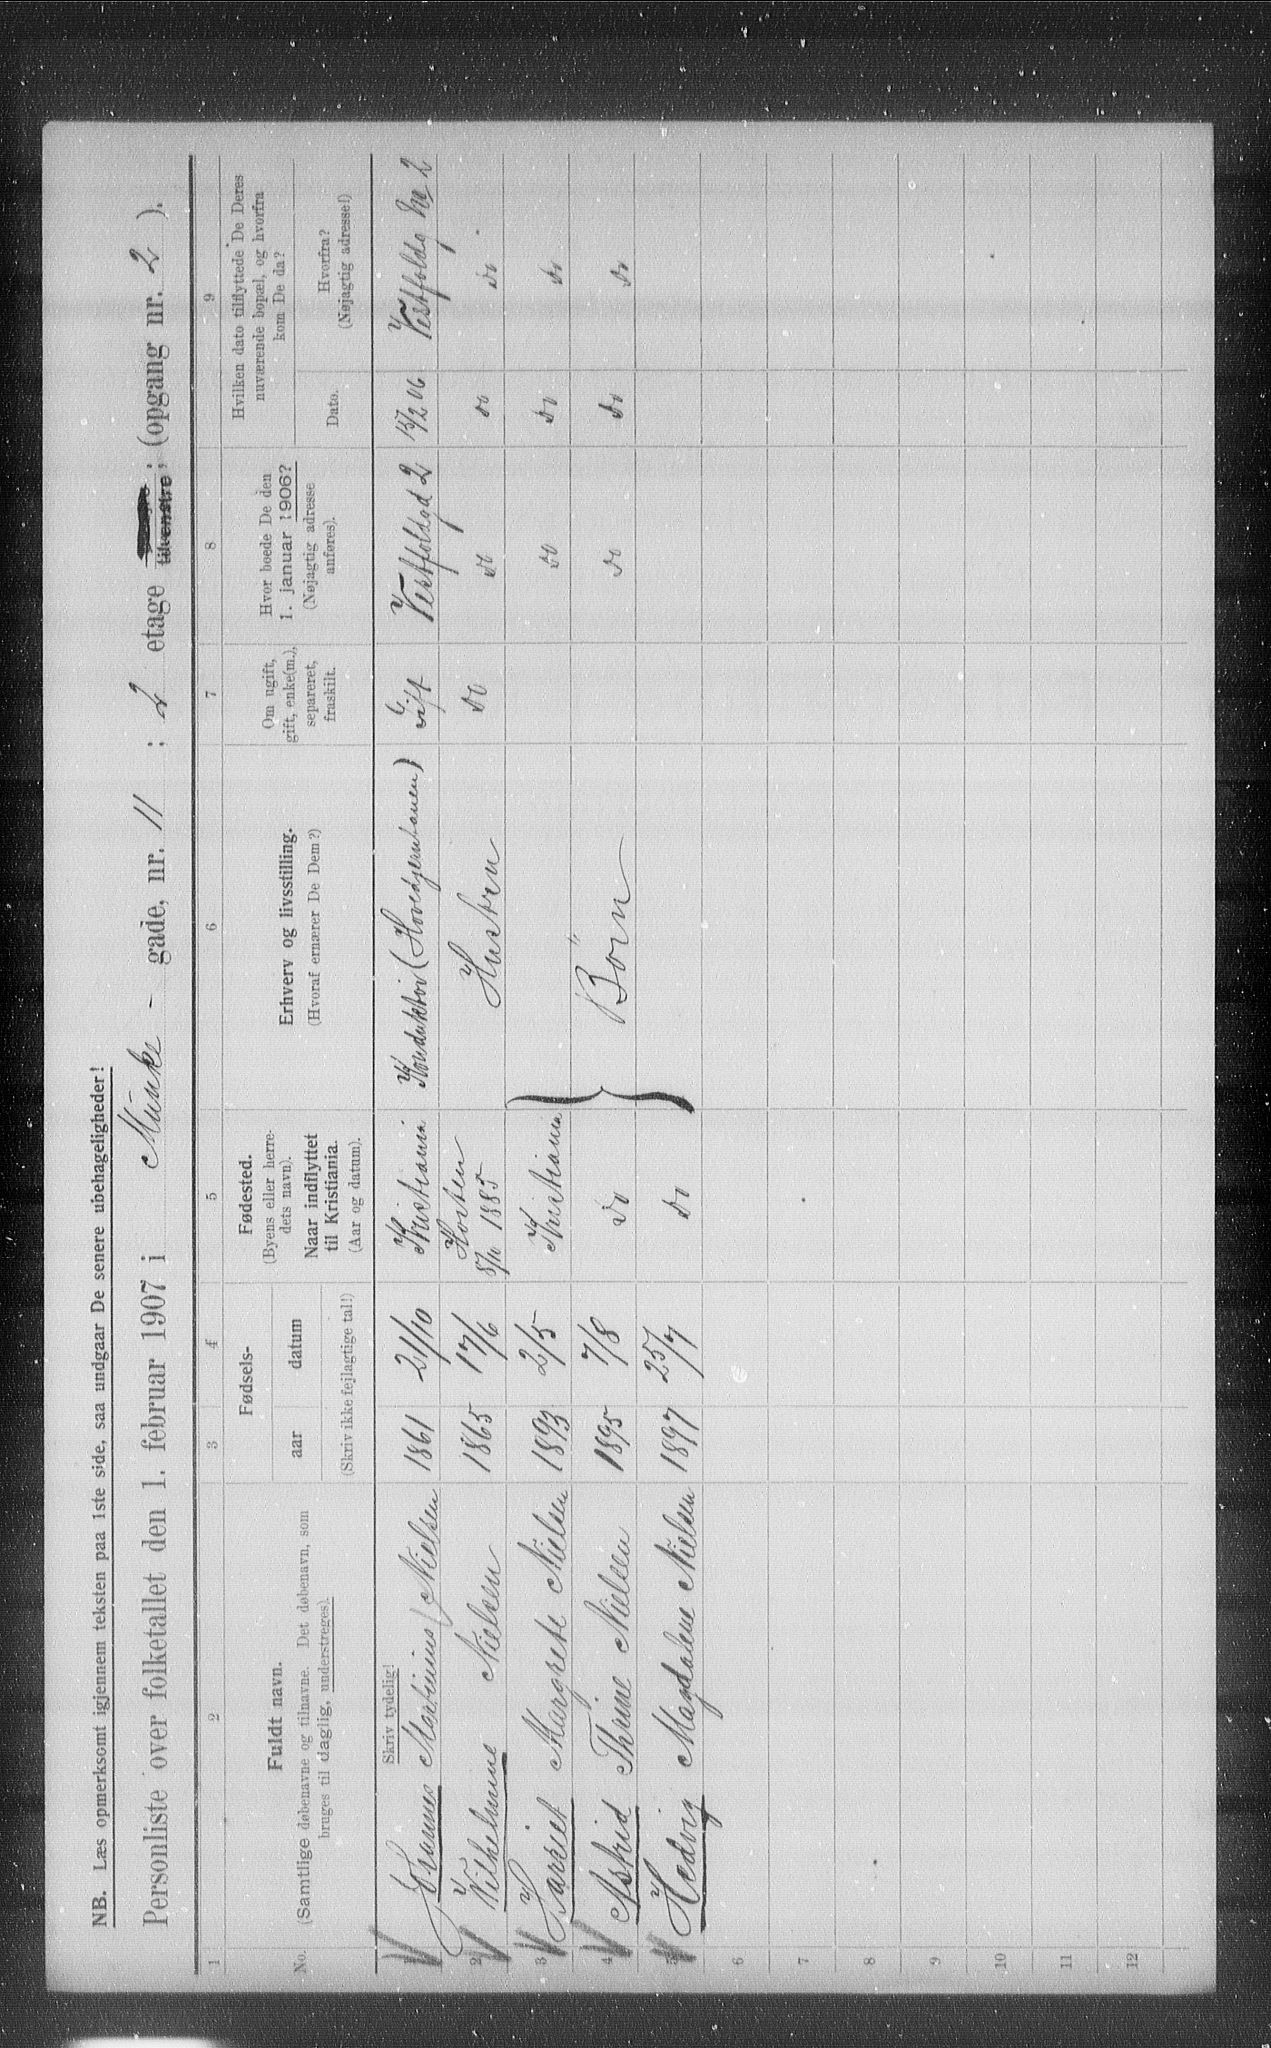 NB. Læs opmerksomt igjennem teksten paa 1ste side, saa undgaar De senere ubehageligheder!
Personliste over folketallet den 1. februar 1907 i Munke - gade, nr. 11 ; 2 etage tilvenstre; (opgang nr. 2 ).
1 2 3 4 5 6 7 8 9
No. Fuldt navn. (Samtlige døbenavne og tilnavne. Det døbenavn, som bruges til daglig, understreges).
Fødsels- aar datum (Skriv ikke fejlagtige tal!)
Fødested. (Byens eller herredets navn). Naar indflyttet til Kristiania. (Aar og datum).
Erhverv og livsstilling. (Hvoraf ernærer De Dem?)
Om ugift, gift, enke(m.), separeret, fraskilt.
Hvor boede De den 1. januar 1906? (Nøjagtig adresse anføres).
Hvilken dato tilflyttede De Deres nuværende bopæl, og hvorfra kom De da?
Dato. Hvorfra? (Nøjagtig adresse!)
Skriv tydelig!
1 Johannes Martinius Nielsen 1861 21/10 Kristiania Konduktør (Hovedjernbanen) Gift Vestfoldgd 2 15/2 06 Vestfoldg No 2
2 Vilhelmine Nielsen 1865 17/6 Horten 1885 Hustru do do do do
3 Harriet Margrete Nielsen 1893 2/5 Kristiania do do do
4 Astrid Thrine Nielsen 1895 7/8 do Börn do do do
5 Hedvig Magdalene Nielsen 1897 25/7 do
6
7
8
9
10
11
12